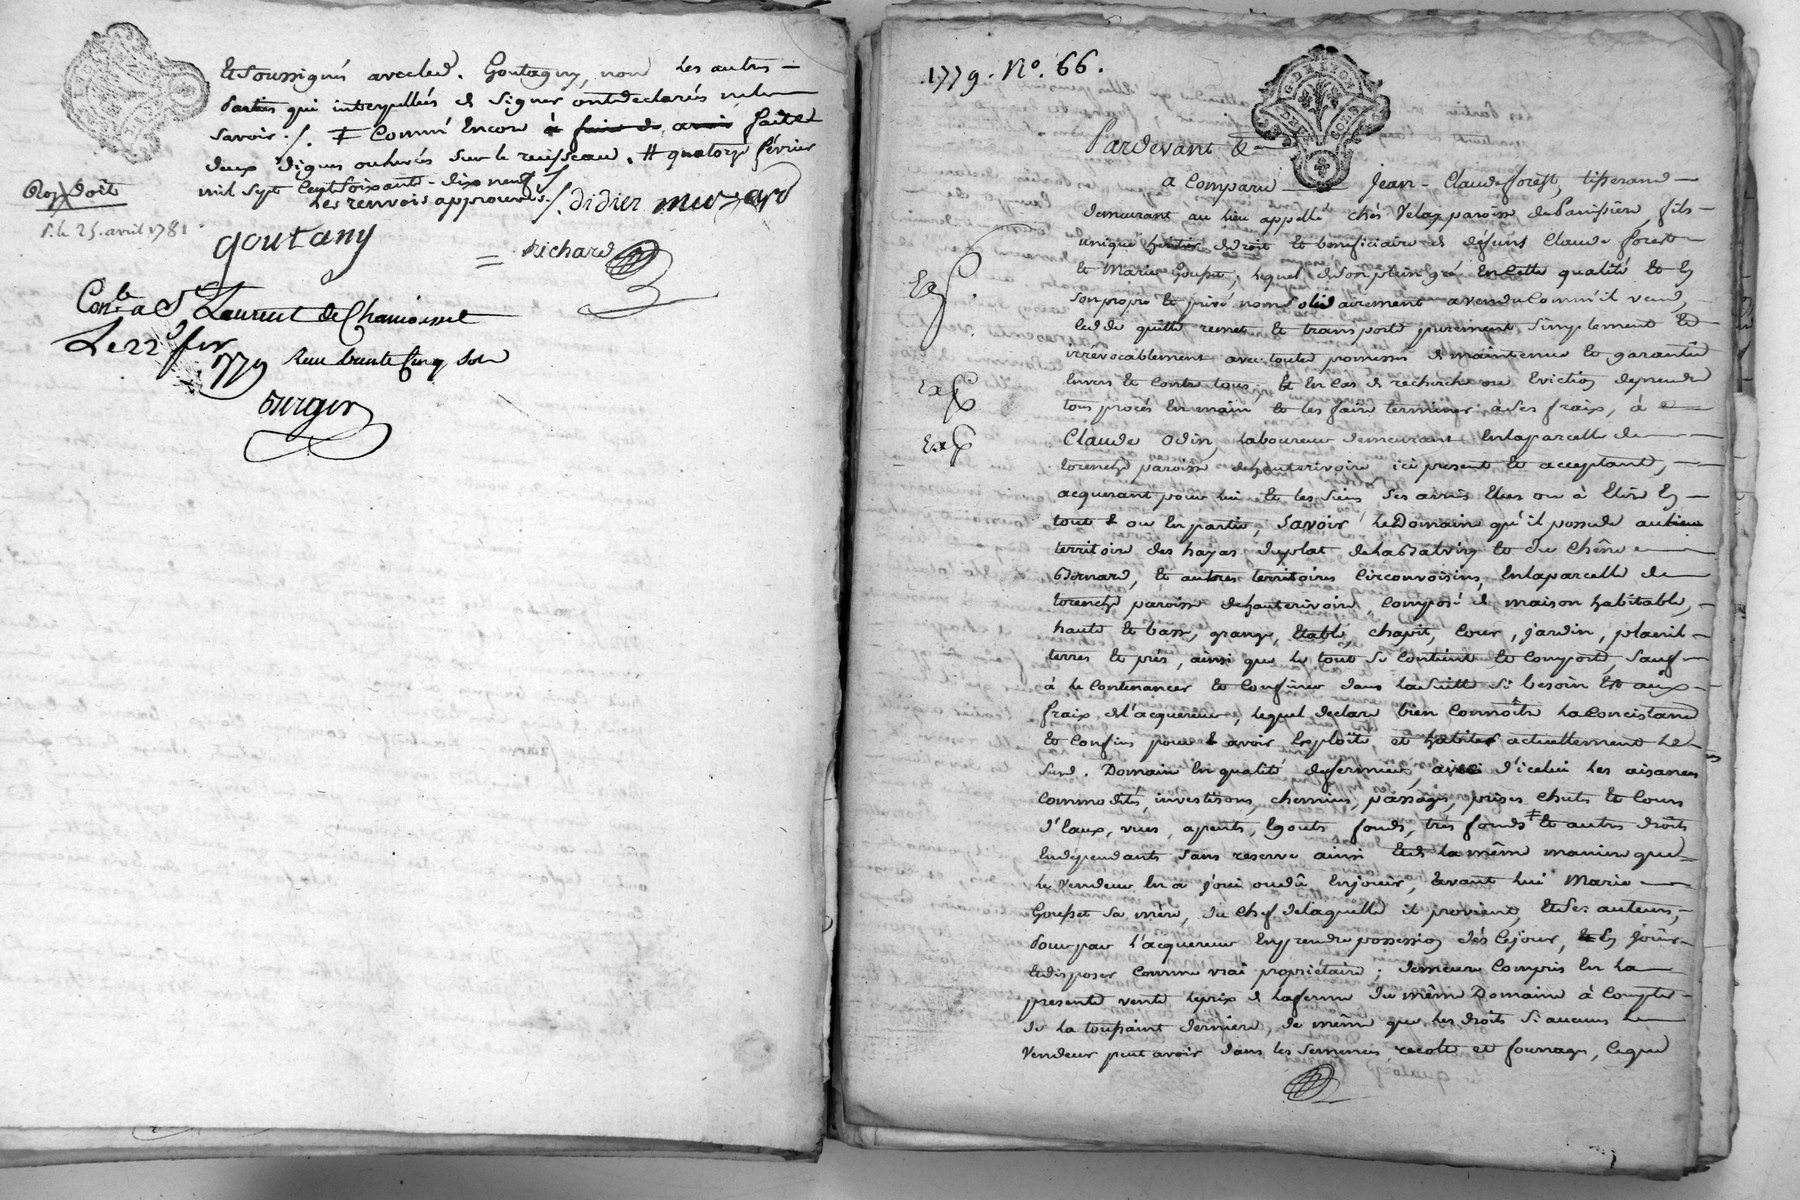 Et Soussignés avec led. Goutagny, non les autres
parties qui interpellées de Signer ont declarés ne le
savoir ./. ‡ Comm' Encore à faire de avoir faite
deux digues ouhurés Sur le ruisseau. # quatorze février
mil Sept Cent Soixante-dix neuf ./.
Les renvois approuvés ./. didier
goutany
= Richard
Roy Doit
S. le 25. avril 1781
Con.lé a St Laurent de Chamousset
Le 22 fer
1779 Reçu trente Cinq Sols
1779. No. 66.
GD. DE LYON
DEUX SOLS
Pardevant &
a Comparu Jean-Claude forest, tisserand
demeurant au lieu appellé chés Velay paroisse de Panissiere, fils
unique heritier de droit Et beneficiaire de défunt Claude forest
Et Marie Gousset, lequel de Son plein gré En Cette qualité Et En
Son propre Et privé nom Solidairement a vendu Comm'il vend,
cede quitte remet Et transporte purement Simplement Et
irrévocablement avec toutes promesses de maintenue Et garantie
Envers Et Contre tous, Et En Cas de recherche ou Eviction de prendre
tous procés En main Et les faire terminer à Ses fraix, à
Claude Odin, laboureur demeurant En la parcelle de
torenche paroisse de hauterivoire, ici present Et acceptant,
acquerant pour lui Et les Siens Ses amis Elus ou à Elire En
tout ou En partie, Savoir le Domaine qu'il possede au lieu
territoire des hayes, du plat de la et du Chêne
Bernard, Et autres territoires Circonvoisins, En la parcelle de
torenche paroisse de hauterivoire, Composé de maison habitable,
haute Et basse, grange, Etable, chapit, Cour, jardin,
terres Et prés, ainsi que le tout Se Contient Et Comporte, Sauf
à le Contenancer Et Confiner dans la Suitte Si besoin Est aux
fraix de l'acquereur, lequel declare bien Connoître la Concistance
Et Confins pour avoir Exploité, et habiter actuellement le
Susd. Domaine En qualité de fermier, avec d'icelui les aisances
Commodités, investisons, chemins, passages, prises, chute Et Cours
d'Eaux, vues, apents, Egouts fonds, trés fonds ‡ Et autres droits
En dépendants Sans reserve ainsi Et de la même maniere que
le Vendeur En a joui ou dû En jouir, Et avant lui Marie
Gousset Sa mere, du Chef de laquelle il provient, Et Ses auteurs,
Pour par l'acquereur En prendre possession dés Ce jour, En jouir
Et disposer Comme vrai propriétaire ; demeure Compris En la
présente vente le prix de la ferme du même Domaine à Compter
de la toussaint derniere, de même que les droits Si aucuns le
Vendeur peut avoir dans les Semences recolte et fourrages, lequel